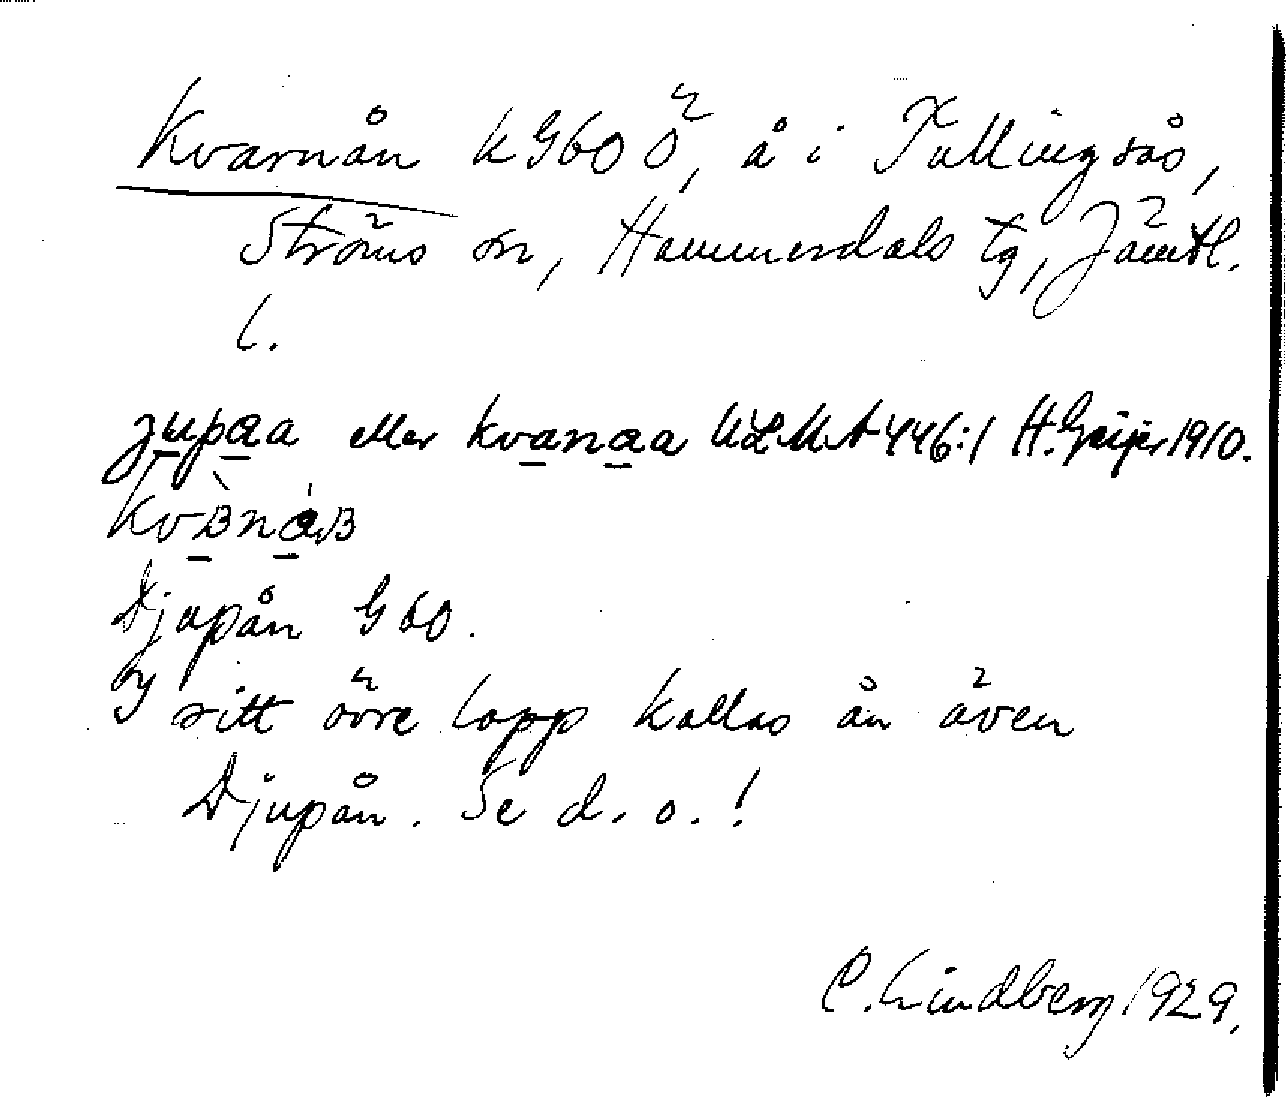 Kvarnån k G60 Ö, å i Tullingsås,
Ströms sn, Hammerdals tg, Jämtl.
l.
jupaa eller kvanaa ULMA 446:1 H. Geijer 1910.
Djupån G 60.
sitt övre lopp kallas ån även
Djupån. Se d. o.!
C. Lindberg 1929.